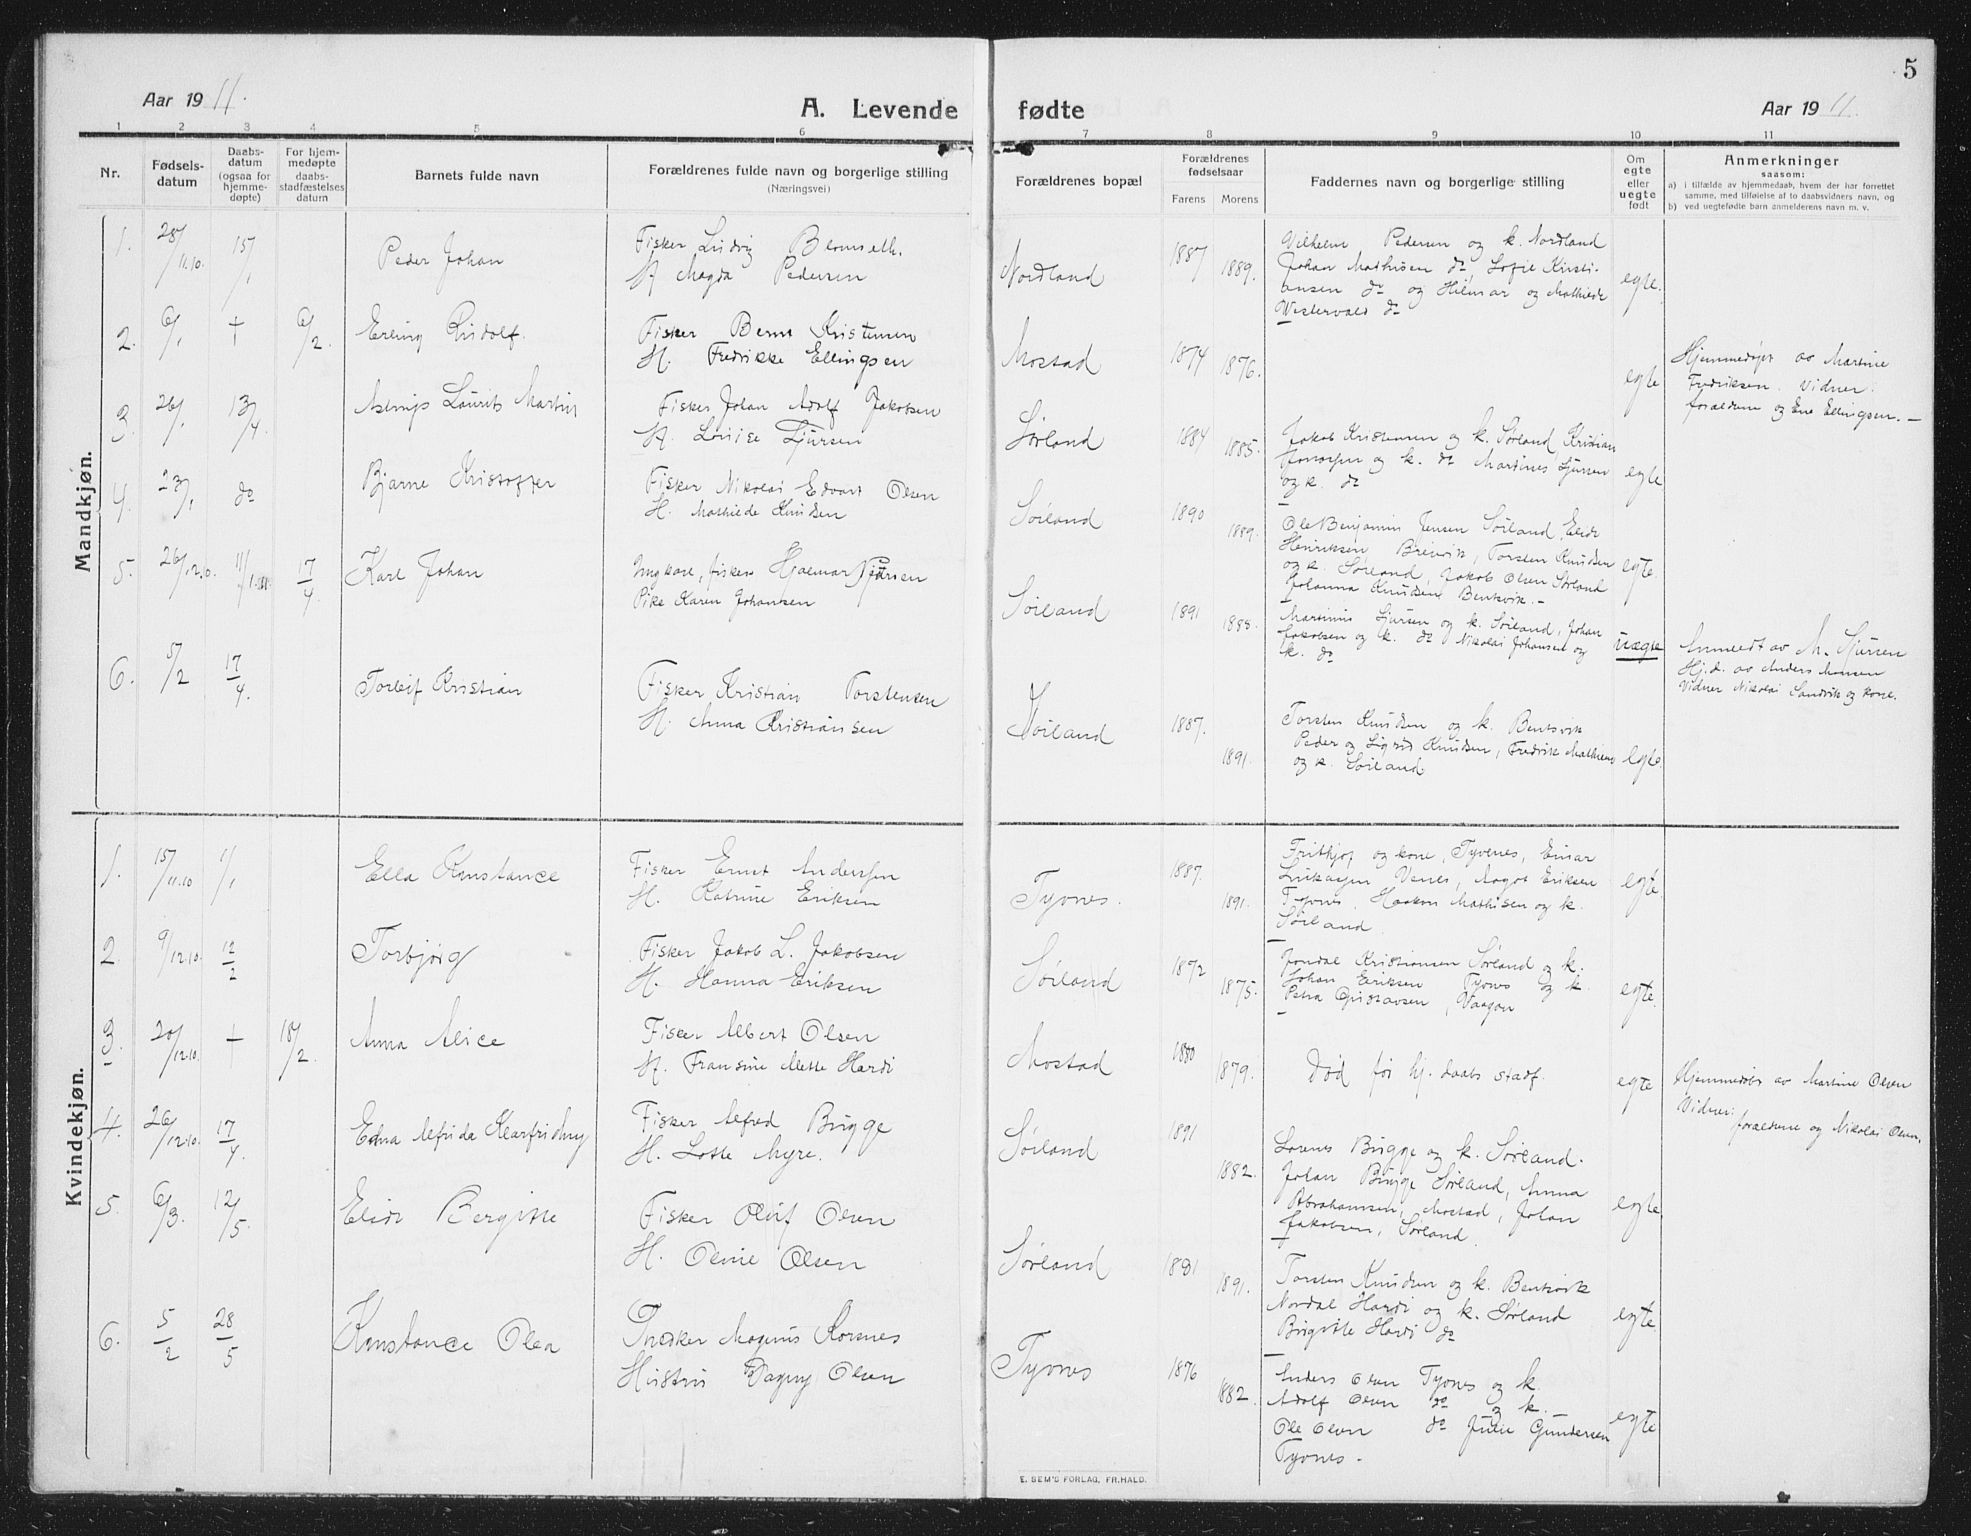 5
Aar 19 11.
A. Levende fødte
Aar 19 11.
1 2 3 4 5 6 7 8 9 10 11
Nr.
Fødsels-
datum
Daabs-
datum
(ogsaa for
hjemme-
døpte)
For hjem-
medøpte
daabs-
stadfæstelses
datum
Barnets fulde navn
Forældrenes fulde navn og borgerlige stilling
(Næringsvei)
Forældrenes bopæl
Forældrenes
fødselsaar
Farens Morens
Faddernes navn og borgerlige stilling
Om
egte
eller
uegte
født
Anmerkninger
saasom:
a) i tilfælde av hjemmedaab, hvem der har forrettet
samme, med tilføielse af to daabsvidners navn, og
b) ved uegtefødte barn anmelderens navn m. v.
Mandkjøn.
1. 28/11.10. 15/1 Peder Johan
Fisker Ludvig
H. Magda Pedersen
Nordland 1887 1889.
Vilhelm Pedersen og k. Nordland
Johan Mathisen do, Sofie Kristi-
ansen do og Hilmar og Mathilde
Vestervald do
egte.
2. 6/1 + 6/2 Erling Rudolf.
Fisker Bernt Kristensen
H. Fredrikke Ellingsen
Mostad 1874 1876.
egte
Hjemmedøpt av Martine
Fredriksen. Vidner:
forældrene og Ellingsen. –
3. 26/1 13/4 Laurits Martin
Fisker Johan Adolf Jakobsen
H. Lovise Sjursen
Sørland 1884 1885.
Jakob Kristensen og k. Sørland, Kristian
og k. do Martines Sjursen
og k. do
egte
4. 23/1 do Bjarne Kristoffer
Fisker Nikolai Edvart Olsen
H. Mathilde Knudsen
Sørland 1890 1889.
Ole Benjamin Jensen Sørland, Elide
Henriksen Breivik, Torsten Knudsen
og k. Sørland, Jakob Olsen Sørland
Johanna Knudsen Bentsvik. –
egte.
5. 26/12.10. 11/1 17/4 Karl Johan
Ungkarl, fisker Hjalmar
Pike Karen Johansen
Sørland 1891 1888.
Martinus Sjursen og k. Sørland, Johan
Jakobsen og k. do Nikolai Johansen og
k. do
uægte
Anmeldt av M. Sjursen
Hj.d. av Anders Monsen
Vidner Nikolai Sandvik og kone.
6. 5/2 17/4. Torleif Kristian
Fisker Kristian Torstensen
H. Anna Kristiansen
Sørland 1887. 1891.
Torsten Knudsen og k. Bentsvik
Peder og Sigrid Knudsen, Fredrik Mathisen
og k. Sørland.
egte
Kvindekjøn.
1. 15/11.10 1/1 Ella Konstance
Fisker Ernst Andersen
H. Katrine Eriksen
Tyvnes. 1887. 1891.
Frithjof og kone, Tyvenes, Einar
Lukassen Vænes, Aagot Eriksen
Tyvnes, Haakon Mathisen og k.
Sørland.
egte
2. 9/12.10. 12/2 Torbjørg
Fisker Jakob L. Jakobsen
H. Hanna Eriksen
Sørland 1872 1875.
Kristiansen Sørland og k.
Johan Eriksen Tyvnes og k.
Petra Gustavsen, Vaagan
egte.
3. 20/12.10. + 18/2. Anna Alice
Fisker Albert Olsen
H. Fransine Mette Hardi
Mostad 1880 1879.
Død før hj. daabs stadf.
egte
Hjemmedøbt av Martine Olsen
Vidner:
forældrene og Nikolai Olsen.
4. 26/12.10. 17/4 Edna Alfrida
Fisker Alfred Brygge
H. Lotte Myre.
Sørland 1891 1882.
Brygge og k. Sørland.
Johan Brygge Sørland, Anna
Abrahamsen, Mostad, Johan
Jakobsen, Sørland.
egte.
5. 6/3. 12/5. Elide Bergitte
Fisker Oluf Olsen
H. Oline Olsen
Sørland 1881 1891.
Torsten Knudsen og k. Bentsvik
Nordal Hardi og k. Sørland
Birgitte Hardi do
egte.
6. 5/2 28/5 Konstance Olea
Magnus Kornes
Hustru Dagny Olsen
Tyvnes 1876 1882.
Anders Olsen Tyvnes og k.
Adolf Olsen do og k.
Ole Olsen do Julie Gundersen
Tyvnes.
egte
E. SEM'S FORLAG, FR.HALD.